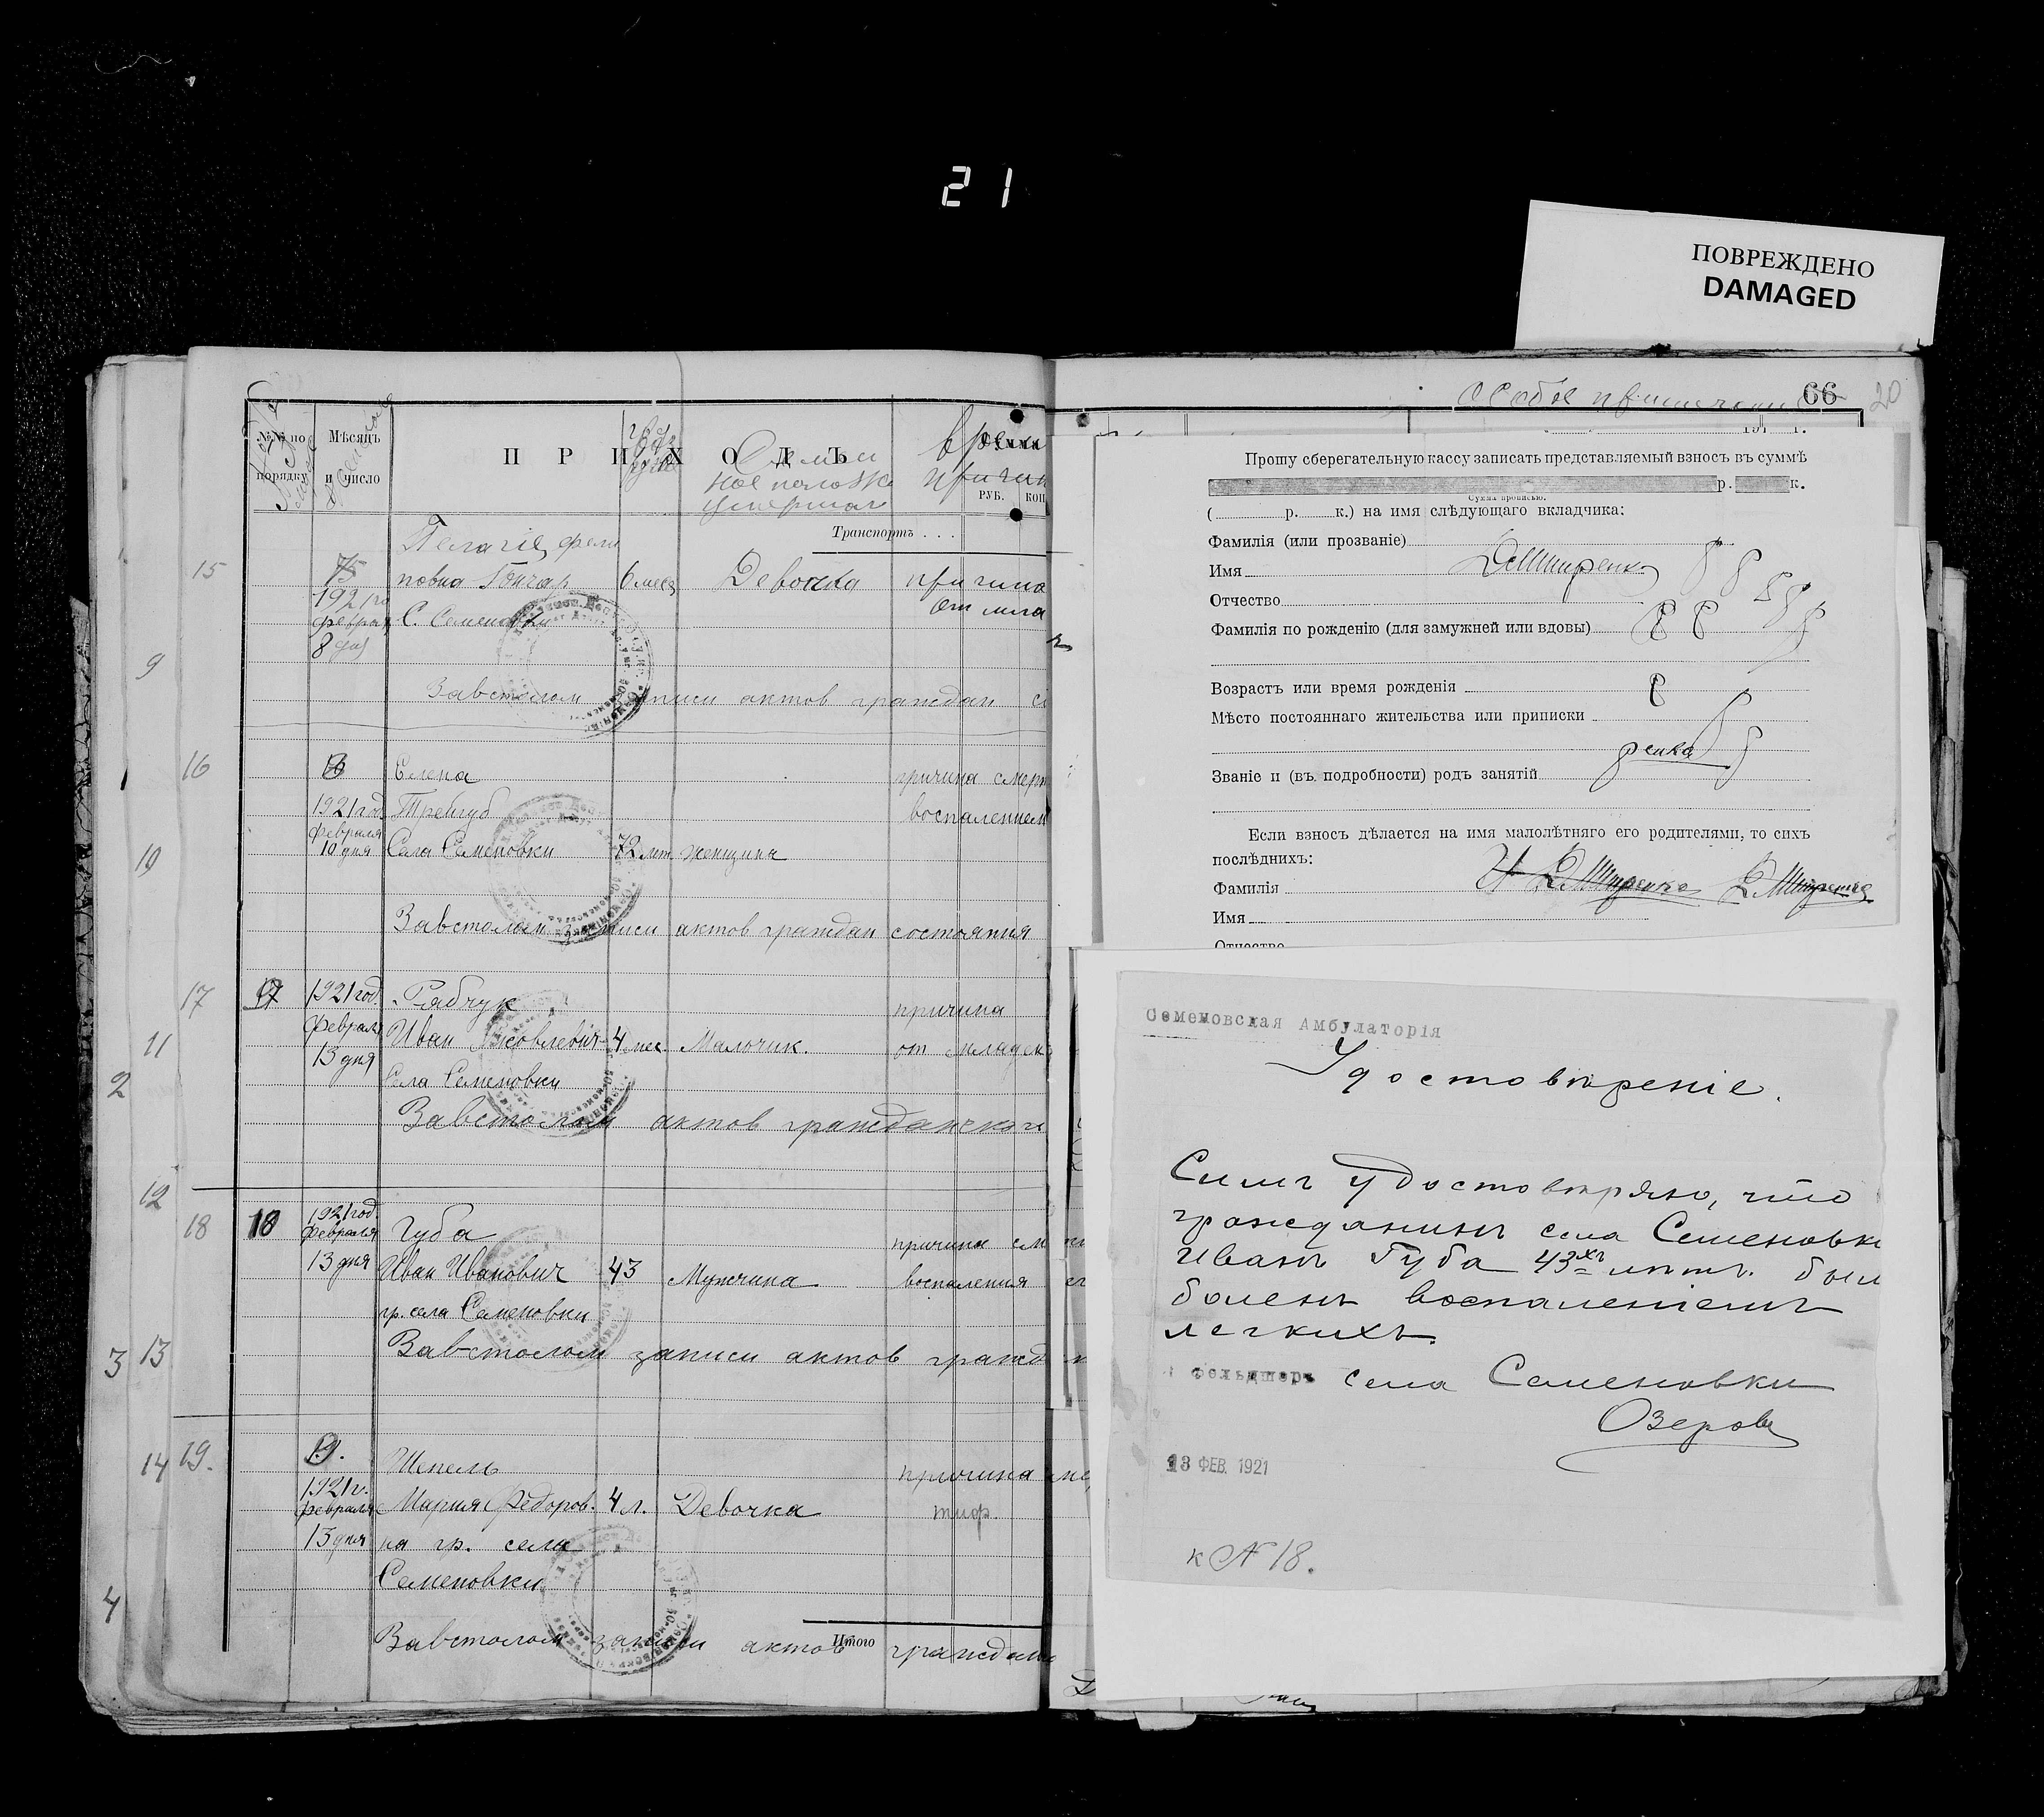 21
ПОВРЕЖДЕНО
DAMAGED
№№ по
порядку
Мѣсяцъ
и число
ПРИХОДЪ
Сумма
РУБ. КОП
Транспортъ . . .
15
Пелагіе фели
повна Гончар 6 меся Девочка причина
1921 го
феврал С. Семеновки от мла
8 дня
9
Завстолом записи актов граждан
16
16 Елена причина смерт
1921 год. Трейгуб воспалением
февраля
10 дня Села Семеновки 72 лет женщина
10
Завстолом записи актов граждан состояния
17 17 1921 год. Рябчук причина
февраля Иван Яковлевич 4 мес. Мальчик. от младен
11
13 дня
Села Семеновки
2
Завстолом актов гражданского
12
18 18 1921 год.
февраля Губа причина см
13 дня Иван Иванович 43 Мужчина воспаления
гр. села Семеновки
3 13
Завстолом записи актов гражд
14 19. 19. Шепель причина
1921 г.
февраля Мария Федоров- 4 л. Девочка тиф.
13 дня на гр. села
Семеновки
4
Завстолом записи актов граждан
Итого
особое примечание
66 20
191 г.
Прошу сберегательную кассу записать представляемый взносъ въ суммѣ
р. к.
Сумма прописью.
( р. к.) на имя слѣдующаго вкладчика:
Фамилія (или прозваніе)
Имя
Отчество
Фамилія по рожденію (для замужней или вдовы)
Возрастъ или время рожденія
Мѣсто постояннаго жительства или приписки
ренко
Званіе и (въ подробности) родъ занятій
Если взносъ дѣлается на имя малолѣтняго его родителями, то сихъ
послѣднихъ:
Фамилія
Имя
Отчество
Семеновская Амбулаторія
Удостовѣреніе.
Симъ удостовѣряю, что
гражданинъ села Семеновки
Иванъ Губа 43хъ лѣтъ. был
боленъ воспаленіемъ
легкихъ.
Фельдшеръ села Семеновки
Озеровъ
13 ФЕВ. 1921
к № 18.